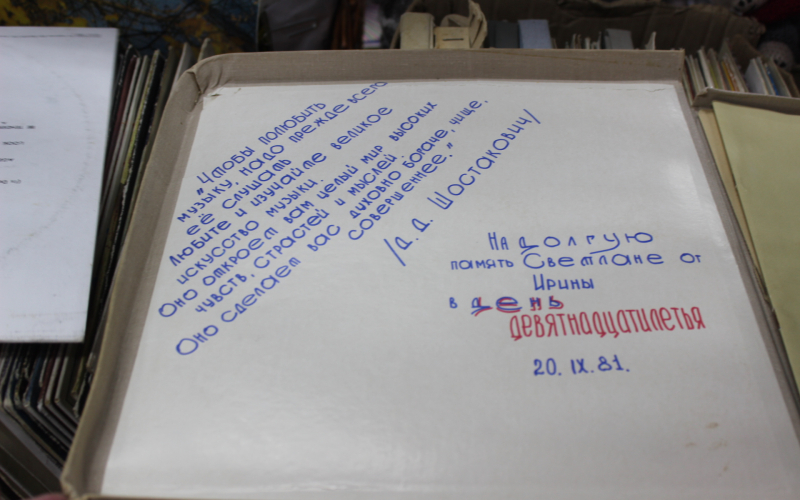 „Чтобы полюбить
музыку, надо прежде всего
её слушать.
Любите и изучайте великое
искусство музыки.
Оно откроет вам целый мир высоких
чувств, страстей и мыслей.
Оно сделает вас духовно богаче, чище,
совершеннее."
/Д. Д. Шостакович/
На долгую
память Светлане от
Ирины
в день
девятнадцатилетья
20. IX. 81.